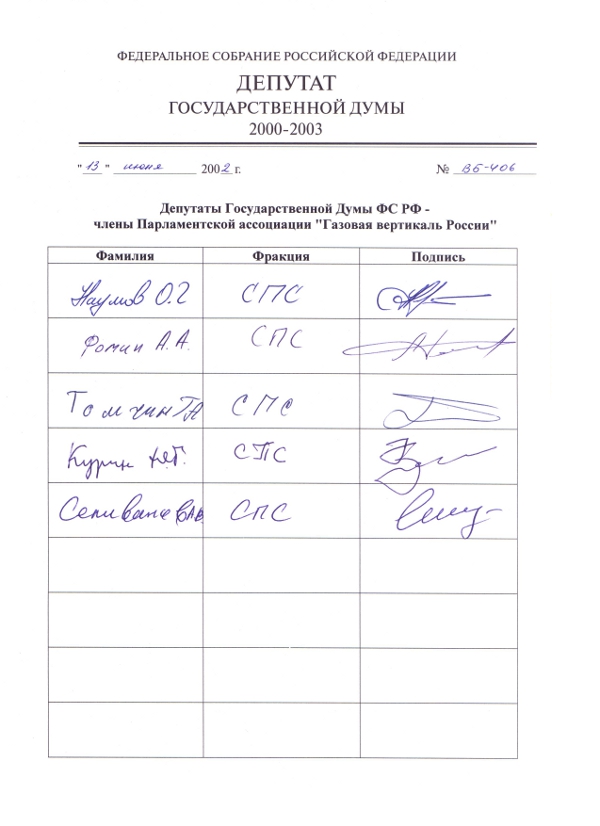 ФЕДЕРАЛЬНОЕ СОБРАНИЕ РОССИЙСКОЙ ФЕДЕРАЦИИ
ДЕПУТАТ
ГОСУДАРСТВЕННОЙ ДУМЫ
2000-2003
" 13 " июня 2002 г. № ВБ-406
Депутаты Государственной Думы ФС РФ -
члены Парламентской ассоциации "Газовая вертикаль России"
Фамилия Фракция Подпись
Наумов О.Г СПС
Фомин А.А. СПС
Томчин ГА СПС
Курин СПС
Селиванов АВ СПС